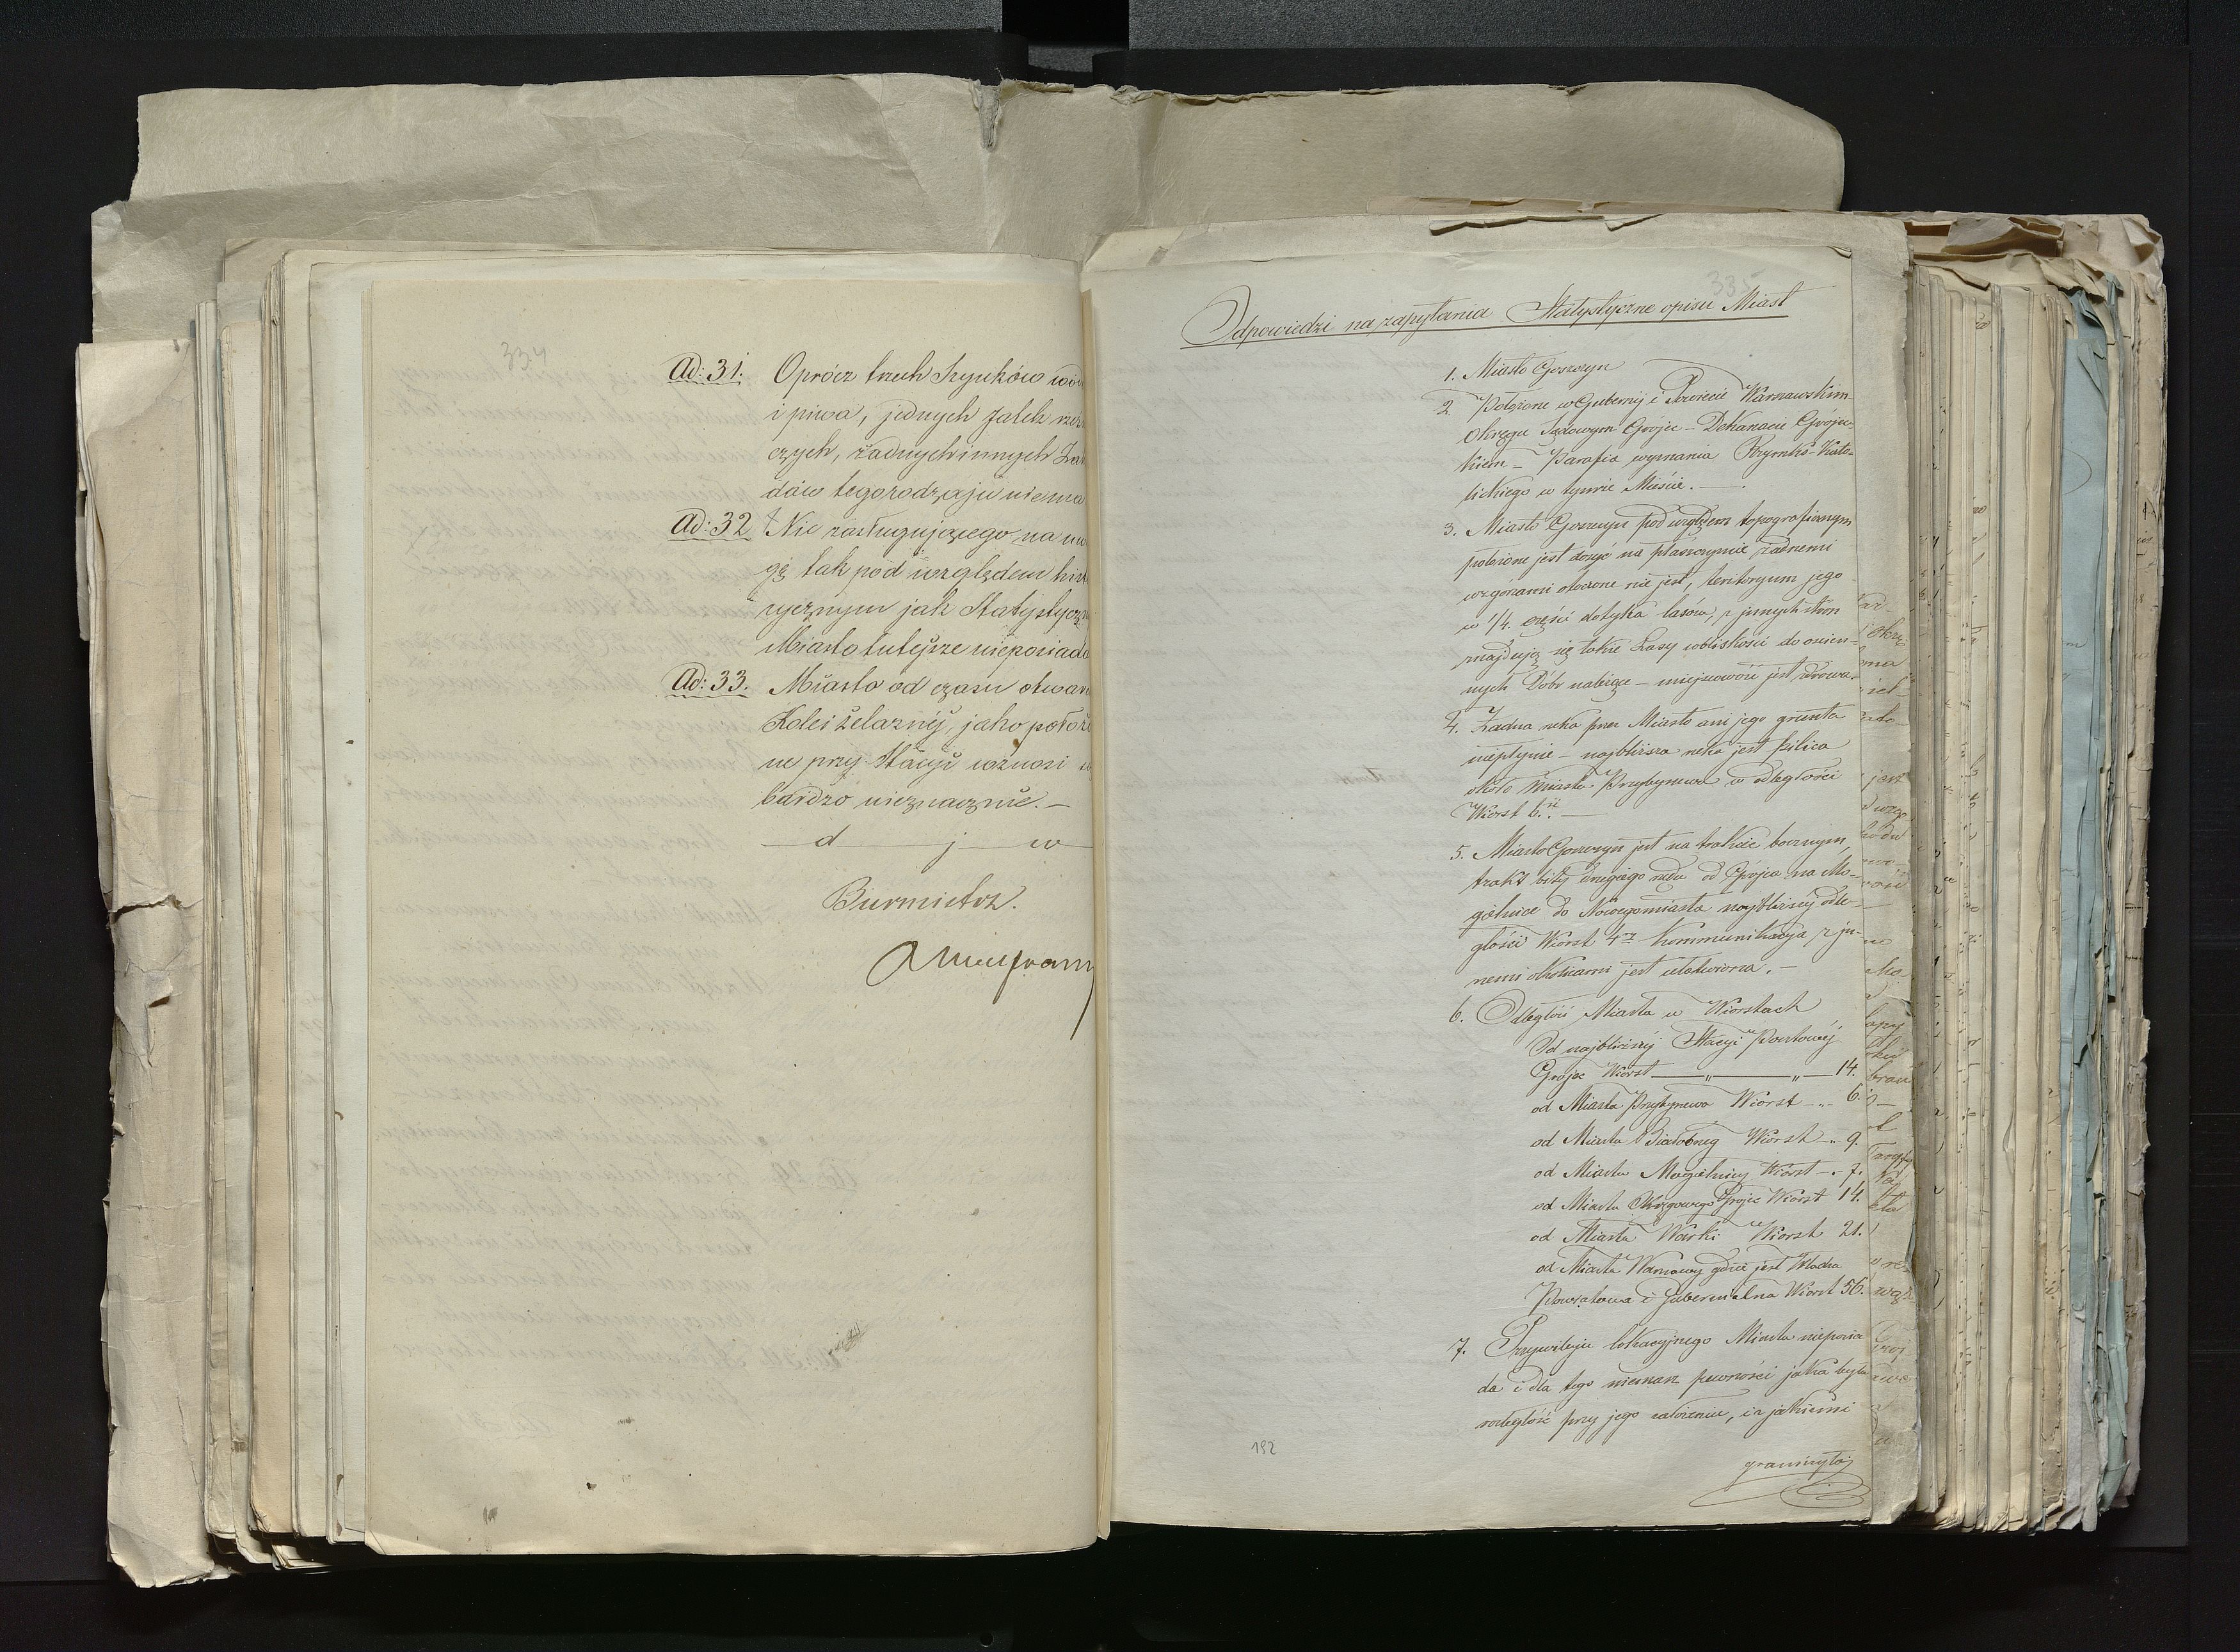 334
Ad: 31. Oprócz trzech Szynków wód
i piwa, jednych Jatek rzeź
czych, żadnych innych Zak
dów tegorodzaju niema
Ad: 32 Nic zasługującego na uw
gę tak pod względem hist
rycznym jak Statystyczn
Miasto tutejsze nieposiada
Ad: 33. Miasto od czasu otwar
Kolei żelaznéj, jako położo
ne przy Stacyi wznosi
bardzo nieznacznie. —
d j w
Burmistrz.
335
Odpowiedzi na zapytania Statystyczne opisu Miast
1. Miasto Goszczyn
2 Położone w Gubernij i Powiecie Warszawskim
Okręgu Sądowym Grójec – Dekanacie Grójec-
kiem – Parafia wyznania Rzymsko-Kato-
lickiego w tymże Mieście. —
3. Miasto Goszczyn pod względem topograficznym
położone jest dosyć na płaszczyznie żadnemi
wzgórzami otoczone nie jest, teritoryum jego
w 1/4. części dotyka lasów, z jnnych stron
znajdują się także Lasy wbliskości do oscien-
nych Dóbr należące – miejscowość jest zdrowa.
4. Żadna rzeka przez Miasto ani jego grunta
niepłynie – najbliższa rzeka jest Pilica
około Miasta Przybyszewa w odległości
Wiorst 6. —
5. Miasto Goszczyn jest na trakcie bocznym,
trakt bity drugiego rzędu od Grójca na Mo-
gielnice do Nowegomiasta najbliższéj odle-
głości Wiorst 4ry Kommunikacya z jn-
nemi okolicami jest ułatwiona. —
6. Odległość Miasta w Wiorstach
Od najbliższéj Stacyi Pocztowéj
Grójec Wiorst — „ — „ — 14.
od Miasta Przybyszewa Wiorst „ 6.
od Miasta Białobrzeg Wiorst – „ 9.
od Miasta Mogielnicy Wiorst – „ 7.
od Miasta Okręgowego Grójec Wiorst 14.
od Miasta Warki Wiorst 21.
od Miasta Warszawy gdzie jest Władza
Powiatowa i Gubernialna Wiorst 56.
7. Przywileju lokacyjnego Miasto nieposia
da i dla tego niemasz pewności jaka była
rozległość przy jego założeniu, i z jakiemi
graniczyło
192